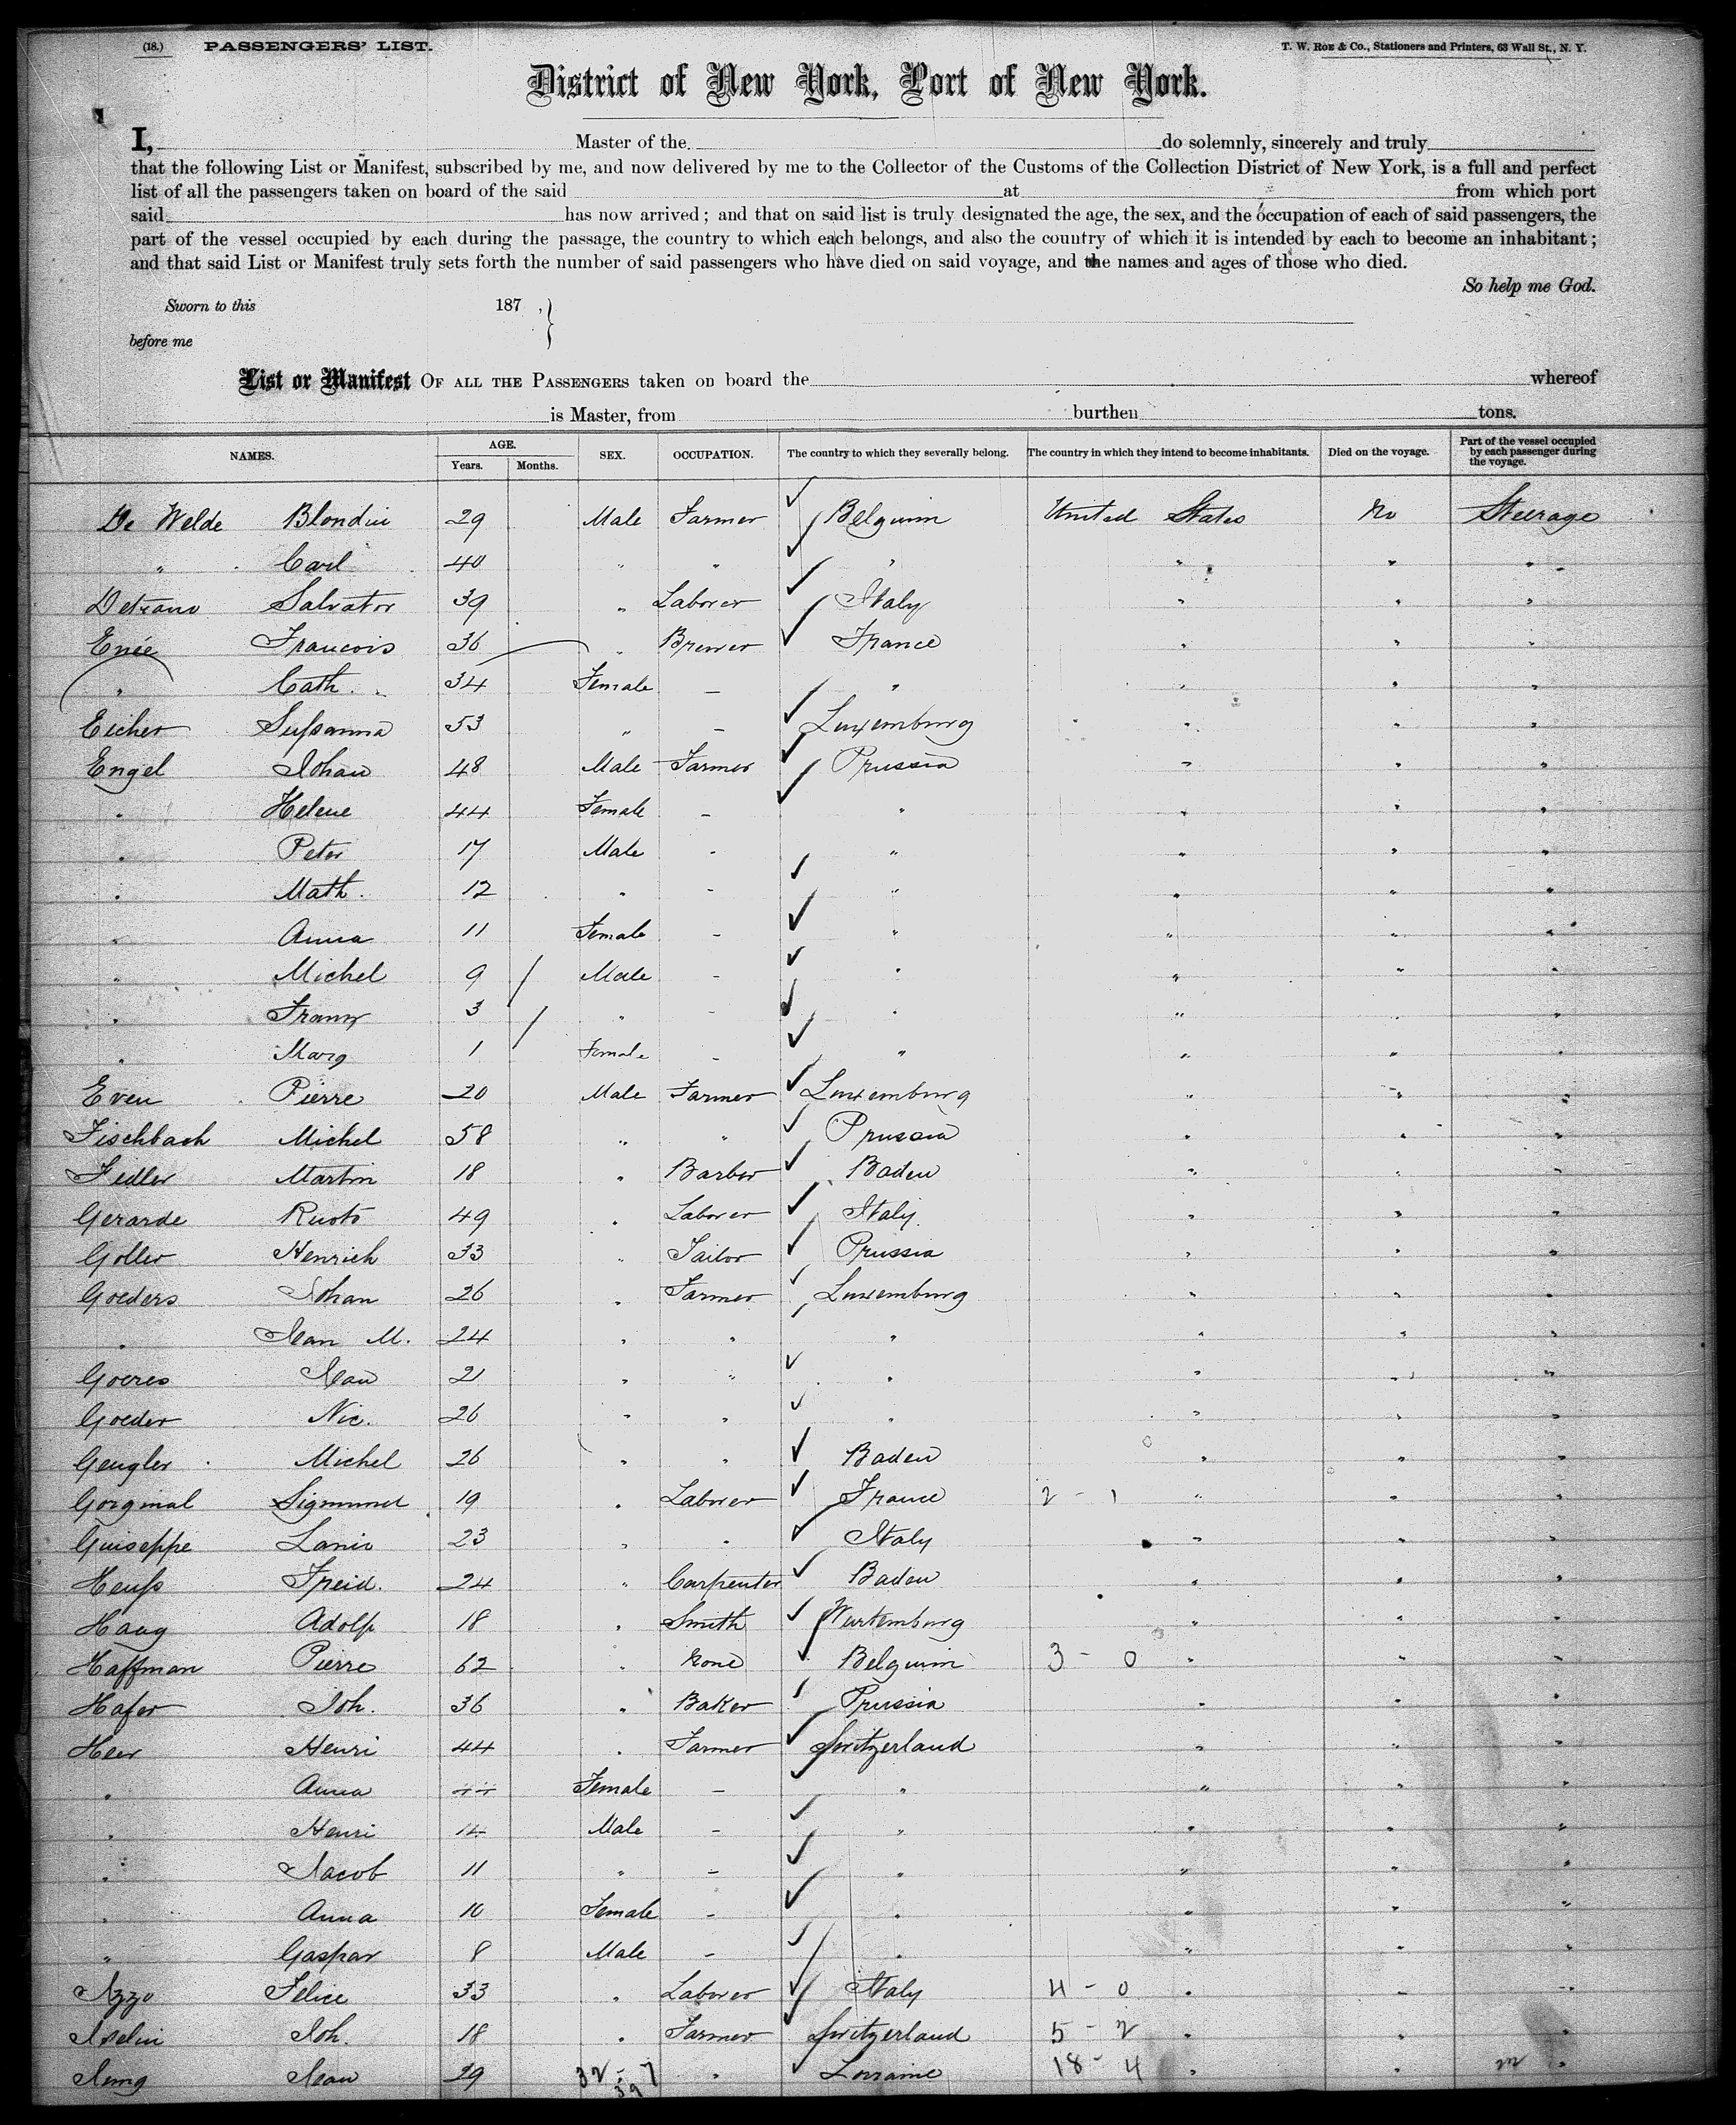 (18.) PASSENGERS' LIST. T. W. Roe & Co., Stationers and Printers, 63 Wall St., N. Y.
District of New York, Port of New York.
I, Master of the do solemnly, sincerely and truly
that the following List or Manifest, subscribed by me, and now delivered by me to the Collector of the Customs of the Collection District of New York, is a full and perfect
list of all the passengers taken on board of the said at from which port
said has now arrived; and that on said list is truly designated the age, the sex, and the occupation of each of said passengers, the
part of the vessel occupied by each during the passage, the country to which each belongs, and also the country of which it is intended by each to become an inhabitant;
and that said List or Manifest truly sets forth the number of said passengers who have died on said voyage, and the names and ages of those who died.
So help me God.
Sworn to this 187 ,}
before me
List or Manifest OF ALL THE PASSENGERS taken on board the whereof
is Master, from burthen tons.
NAMES. AGE. Years. Months. SEX. OCCUPATION. The country to which they severally belong. The country in which they intend to become inhabitants. Died on the voyage. Part of the vessel occupied by each passenger during the voyage.
De Welde Blondin 29 Male Farmer Belguim United States No Steerage
" Carl 40 " " " " " "
Detrano Salvator 39 " Laborer Italy " " "
Enée Francois 36 " Brewer France " " "
" Cath. 34 Female – " " " "
Eicher Sussanna 53 " – Luxemburg " " "
Engel Johan 48 Male Farmer Prussia " " "
" Helene 44 Female – " " " "
" Peter 17 Male - " " " "
" Math. 12 " - " " " "
" Anna 11 Female - " " " "
" Michel 9 Male - " " " "
" Franz 3 " - " " " "
" Marg 1 Female - " " " "
Even Pierre 20 Male Farmer Luxemburg " " "
Fischbach Michel 58 " " Prussia " " "
Fidler Martin 18 " Barber Baden " " "
Gerarde Ruoto 49 " Laborer Italy " " "
Goller Henrich 33 " Tailor Prussia " " "
Goeders Johan 26 " Farmer Luxemburg " " "
" Jean M. 24 " " " " " "
Goeres Jean 21 " " " " " "
Goeder Nic. 26 " " " " " "
Gengler Michel 26 " " Baden " " "
Gorginal Sigmund 19 " Laborer France 2 - 1 " " "
Guiseppe Lanio 23 " " Italy " " "
Heuss Freid. 24 " Carpenter Baden " " "
Haag Adolf 18 " Smith Wurtemburg " " "
Haffman Pierre 62 " None Belguim 3 - 0 " " "
Hafer Joh. 36 " Baker Prussia " " "
Heer Henri 44 " Farmer Switzerland " " "
" Anna 44 Female – " " " "
" Henri 14 Male – " " " "
" Jacob 11 " – " " " "
" Anna 10 Female – " " " "
" Gaspar 8 Male – " " " "
Izzo Felice 33 " Laborer Italy 4 - 0 " " "
Iselin Joh. 18 " Farmer Switzerland 5 - 2 " " "
Jung Jean 29 32 - 7 " Lorraine 18 - 4 " " "
39